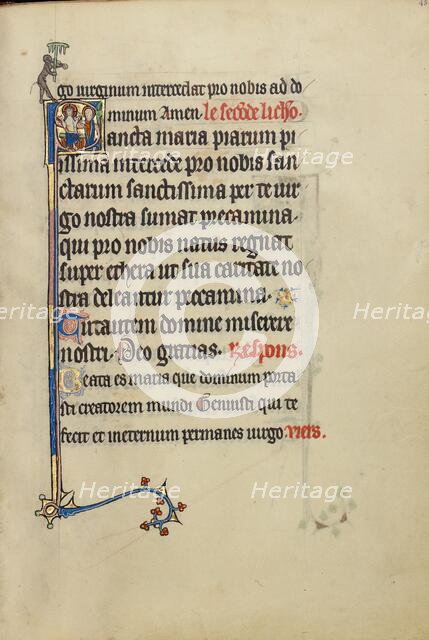 go virginum intercedat pro nobis ad do
minum Amen. le secōde licho.
Sancta maria piarum pi
issima intercede pro nobis san
ctarum sanctissima per te vir
go nostra sumat precamina.
qui pro nobis natus regnat
super ethera ut sua caritate no
stra deleantur peccamina.
Tu autem domine miserere
nostri. Deo gratias. Respons.
Beata es maria que dominum porta
sti creatorem mundi Genuisti qui te
fecit et ineternum permanes virgo vers.
Heritage
Heritage
Heritage
Heritage
Heritage
Heritage
Heritage
Heritage